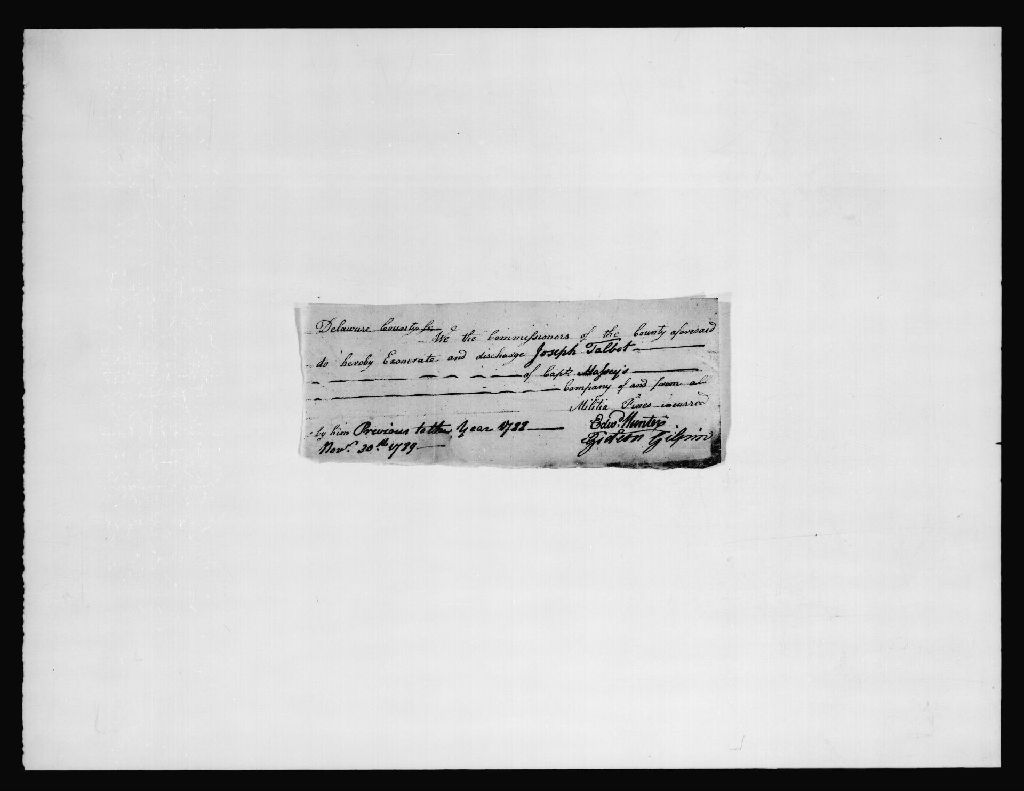 Delaware County Ss
We the Commissioners of the County aforesaid
do hereby Exonerate and discharge Joseph Talbot
of Capt. Massey's
Company of and from all
Militia Fines incurred
by him Previous to the Year 1788
Edwd. Hunter
Novr. 30th 1789
Gideon Gilpin